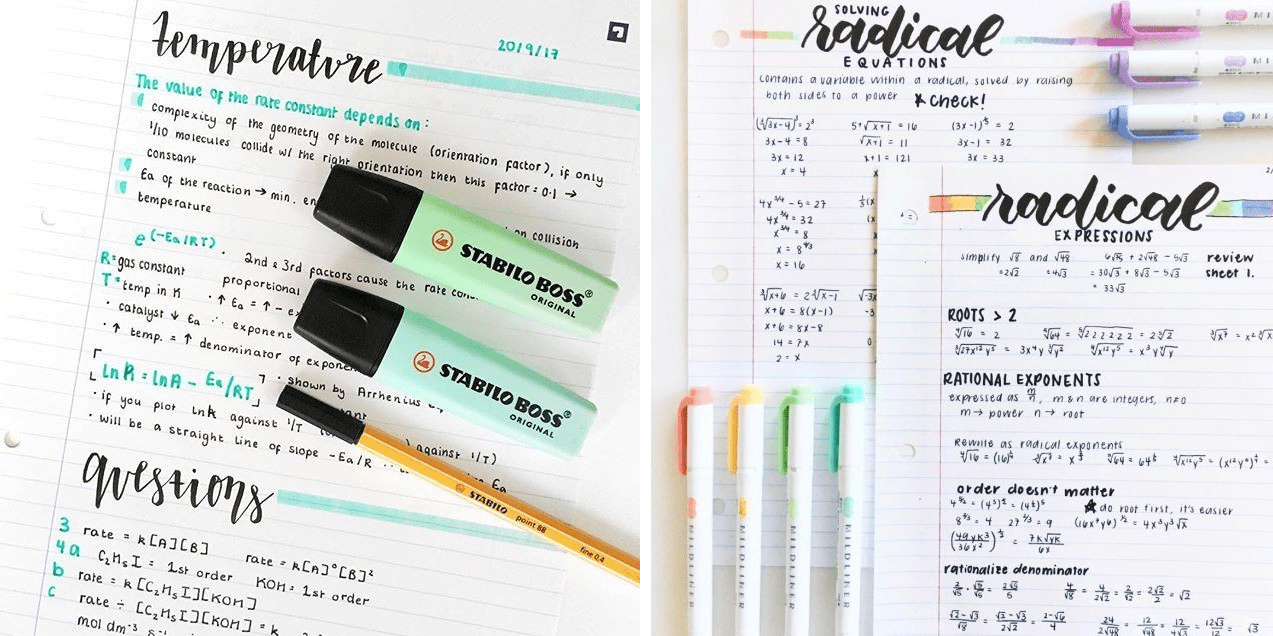 temperature
20/9/17
The value of the rate constant depends on:
complexity of the geometry of the molecule (orientation factor), if only
1/10 molecules collide w/ the right orientation then this factor = 0.1 →
constant
Ea of the reaction → min. en
on collision
temperature
e^(-Ea/RT) . 2nd & 3rd factors cause the rate con
R = gas constant
proportional
T = temp in K
· ↑ Ea = ↑ - e
· catalyst ↓ Ea ∴ exponent
· ↑ temp. = ↑ denominator of expone
· shown by Arrhenius
[ln k = ln A - Ea/RT]
· if you plot lnk against 1/T
against 1/T)
· will be a straight line of slope -Ea/R
Ea
questions
3 rate = k[A][B] rate = k[A]°[B]²
4a C₂H₅I = 1st order KOH = 1st order
b rate = k[C₂H₅I][KOH]
c rate ÷ [C₂H₅I][KOH] = k
mol dm⁻³ s⁻¹
STABILO BOSS®
ORIGINAL
STABILO BOSS®
ORIGINAL
STABILO point 88 fine 0.4
SOLVING
radical
EQUATIONS
contains a variable within a radical, solved by raising
both sides to a power ★ check!
(∛3x-4)³ = 2³ 5+√x+1 = 16
3x-4 = 8 √x+1 = 11 3x-1 = 32
3x = 12 x+1 = 121 3x = 33
x = 4
4x^3/4 - 5 = 27
4x^3/4 = 32
x^3/4 = 8
x = 8^4/3
x = 16
∛x+6 = 2∛x-1
x+6 = 8(x-1)
x+6 = 8x-8
14 = 7x
2 = x
radical
EXPRESSIONS
simplify √8 and √48 6√75 + 2√48 - 5√3 review
=2√2 =4√3 = 30√3 + 8√3 - 5√3 sheet 1.
= 33√3
ROOTS > 2
∜16 = 2
RATIONAL EXPONENTS
expressed as m/n, m & n are integers, n≠0
m → power n → root
Rewrite as radical exponents
order doesn't matter
★ do root first, it's easier
8^2/3 = 4 27^2/3 = 9
rationalize denominator
2/√5 · √5/√5 = 2√5/5 4/√8 = 4/2√2 = 2/√2 = 2√2/2 = √2
MILDLINER
MILDLINER
MILDLINER
MILDLINER
MI
MI
MI